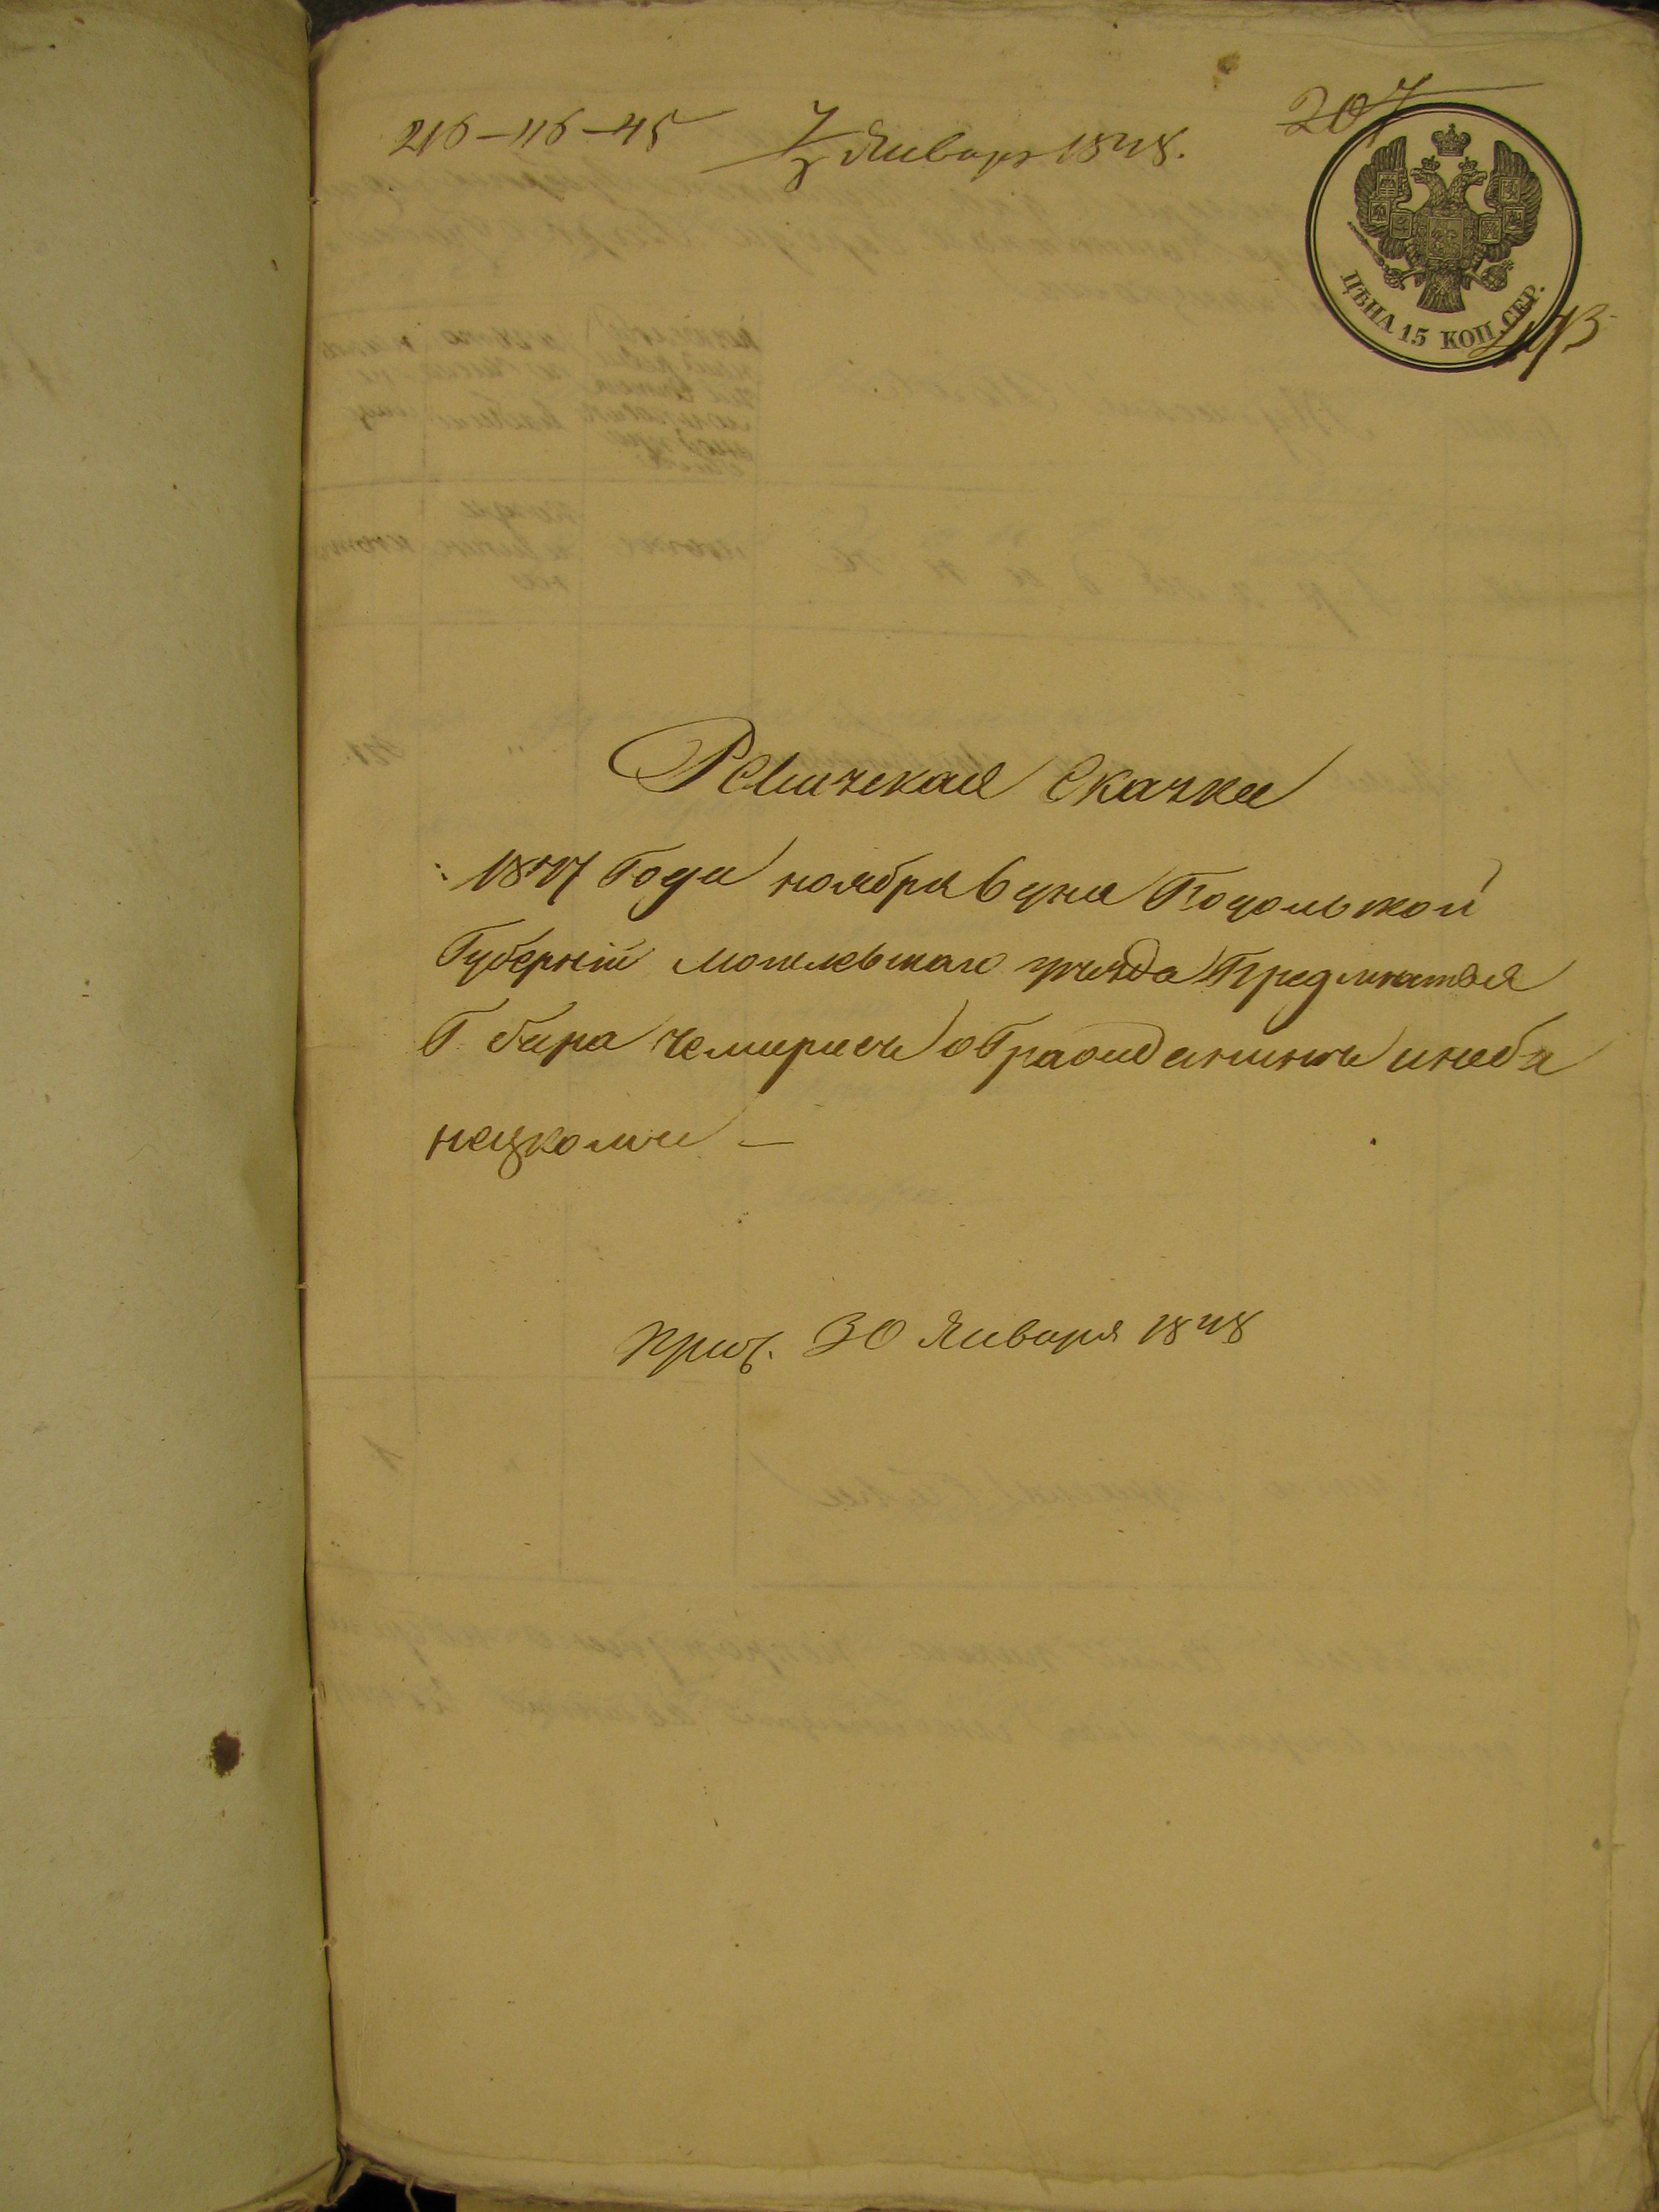 216–116–45
7/8 Январь 1848.
207
ЦѢНА 15 КОП. СЕР.
Ревизская Сказка
1847 Года ноября 6 дня Подольской
Губерніи могилевскаго уезда Предместья
бара Чемирись о Гражданинѣ
Прил. 30 Января 1848